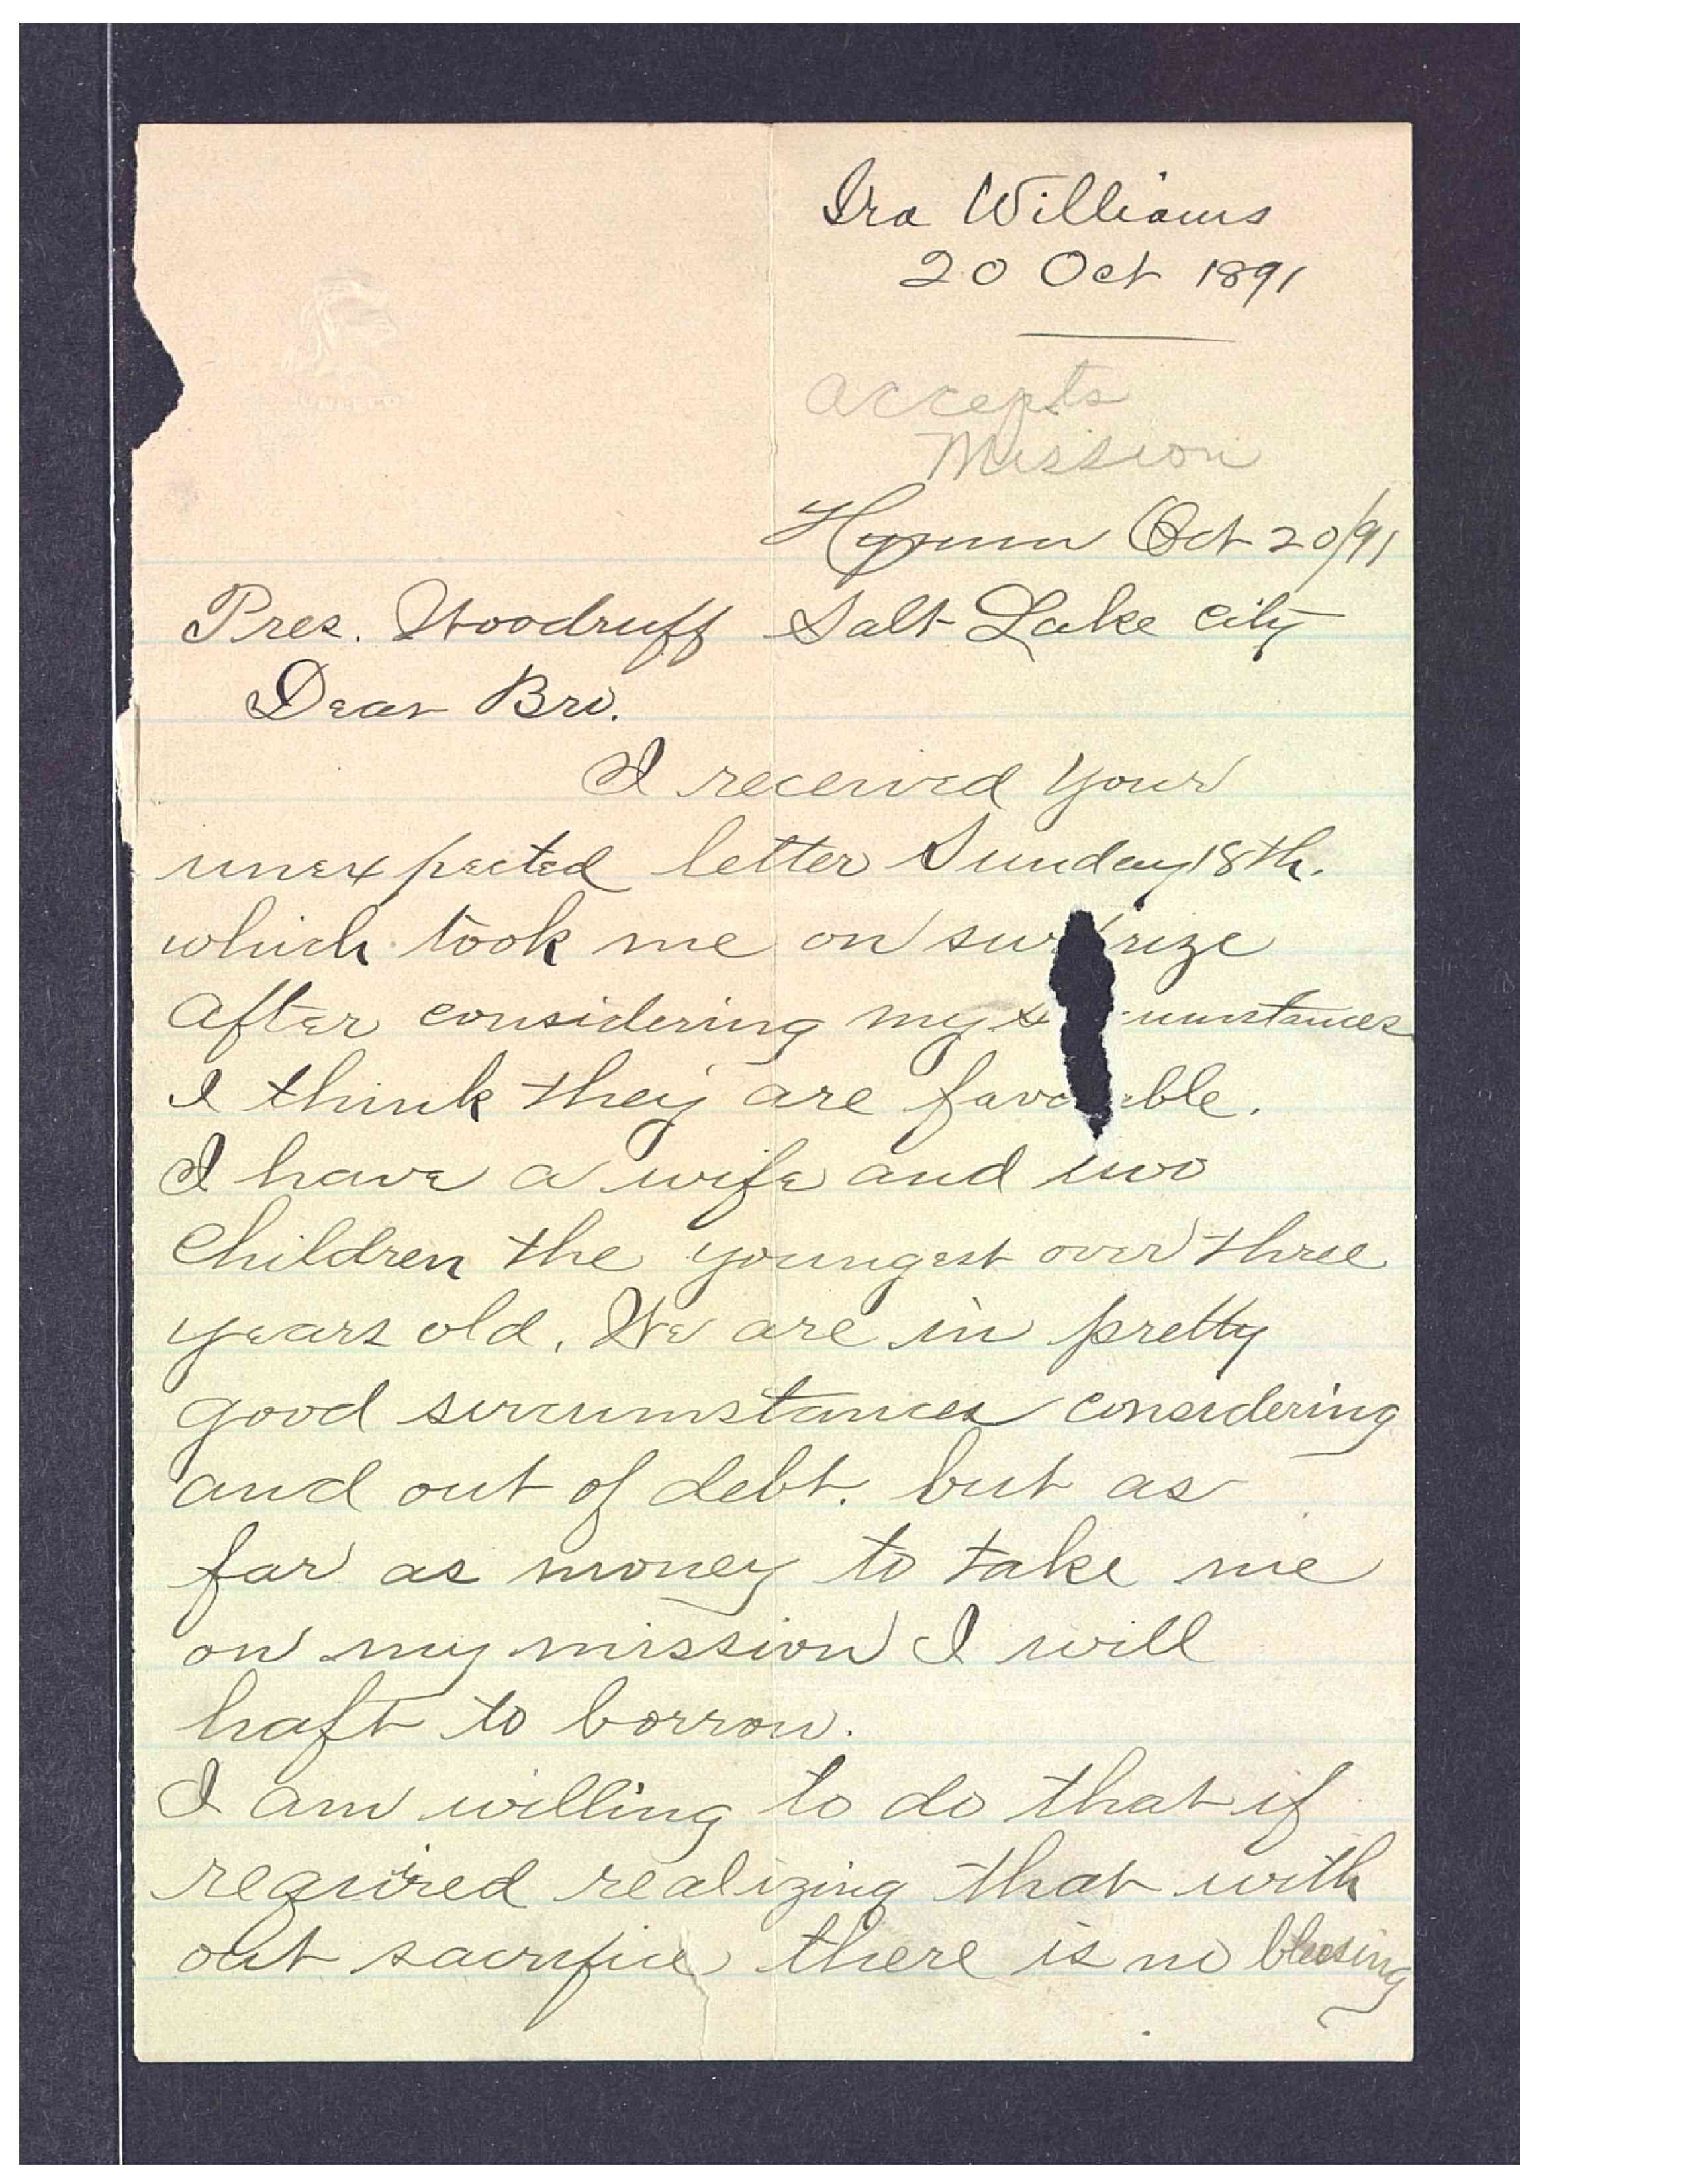 Ira Williams
20 Oct 1891
accepts
Mission
Hyrum Oct 20/91
Pres. Woodruff Salt Lake City
Dear Bro.
I received your
unexpected letter Sunday 18th.
which took me on su rize
After considering my s cumstances
I think they are favo ble.
I have a wife and two
Children the youngest over three
years old. We are in pretty
good sircumstances considering
and out of debt. but as
far as money to take me
on my mission I will
haft to borrow.
I am willing to do that if
required realizing that with
out sacrifice there is no blessing